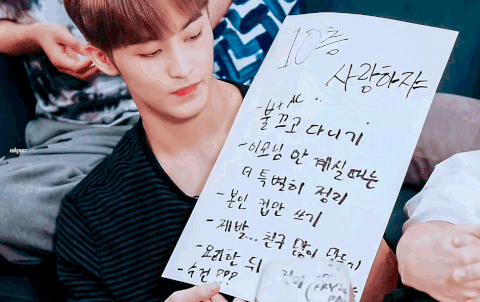 10층
사랑하자
불 끄고 다니기
-이모님 안 계실 때는
더 특별히 정리
-본인 컵만 쓰기
-제발... 친구 많이 만들기
-요리한 뒤
-수건 ???